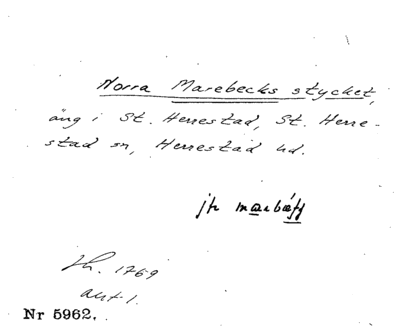 Norra Marebecks stycket,
äng i St. Herrestad, St. Herre-
stad sn, Herrestad hd.
jfr
Lh. 1769
akt 1.
Nr 5962.